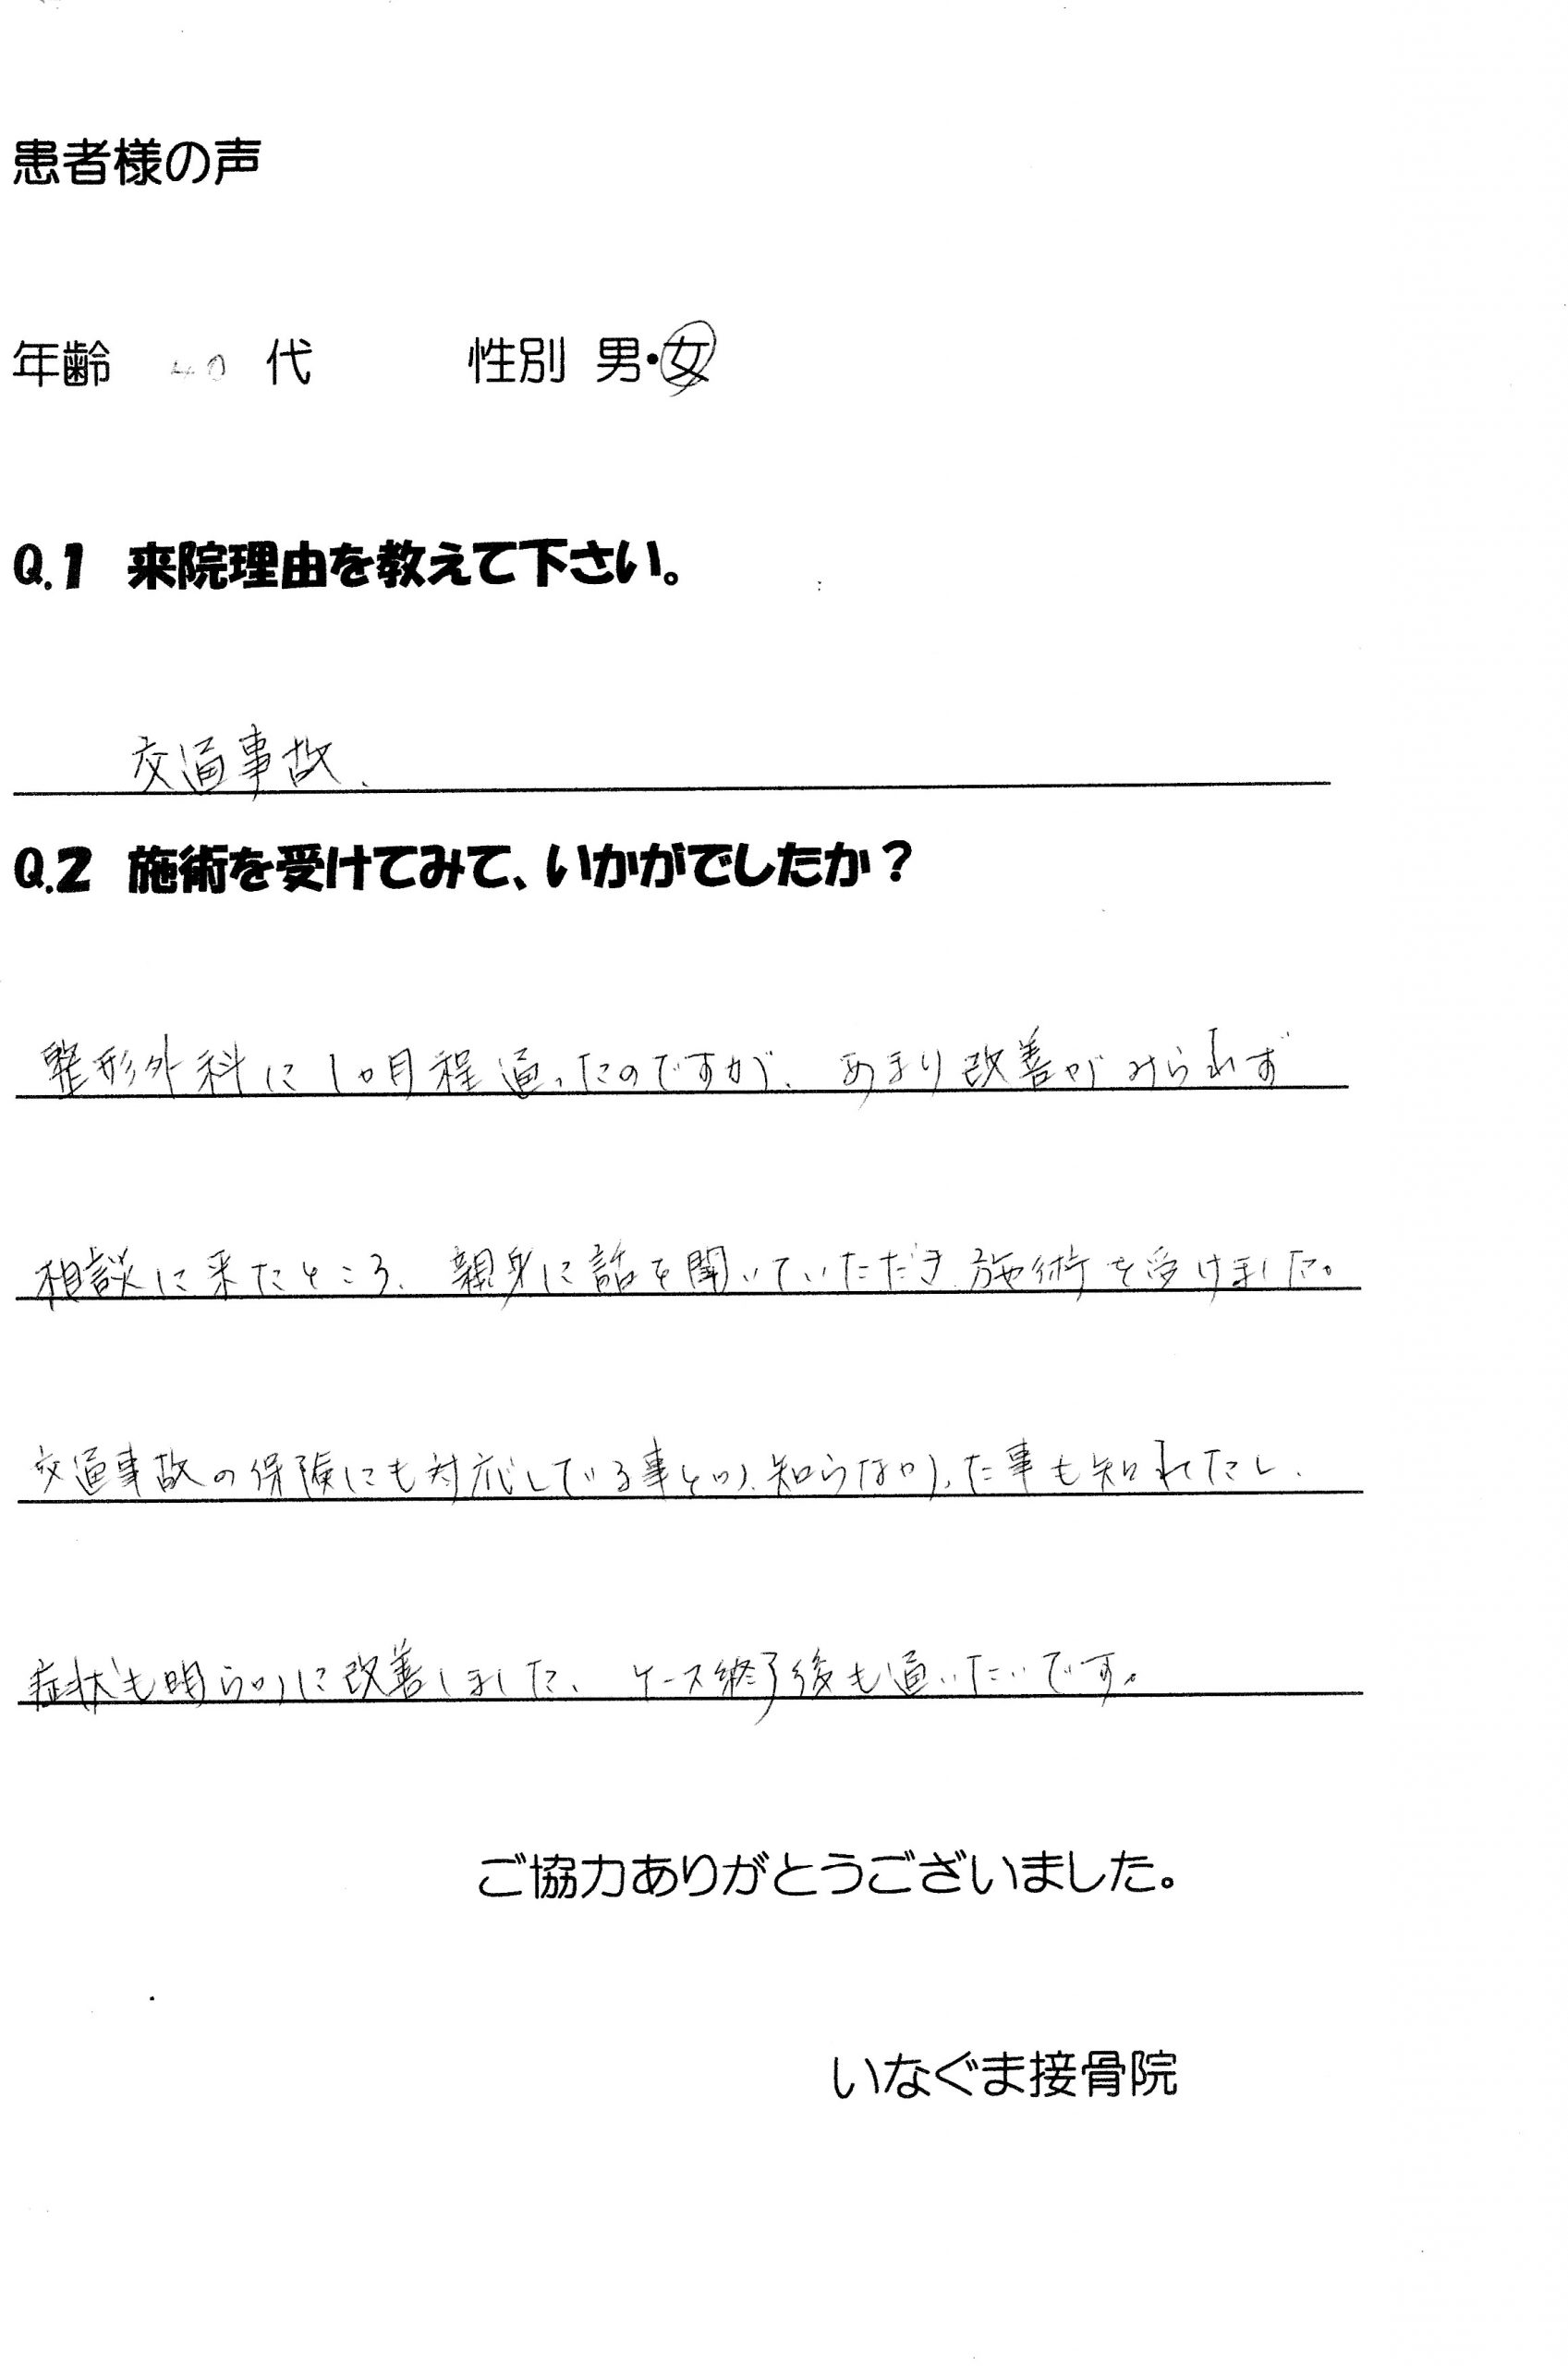 患者様の声
年齢 40 代 性別 男・女
Q.1 来院理由を教えて下さい。
交通事故、
Q.2 施術を受けてみて、いかがでしたか？
整形外科に1ヶ月程通ったのですが、あまり改善がみられず
相談に来たところ、親身に話を聞いていただき、施術を受けました。
交通事故の保険にも対応している事とか、知らなかった事も知れたし、
症状も明らかに改善しました、ケース終了後も通いたいです。
ご協力ありがとうございました。
いなぐま接骨院